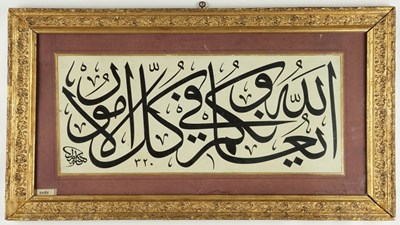 الله يعاونكم في كل الامور
٣٢٠